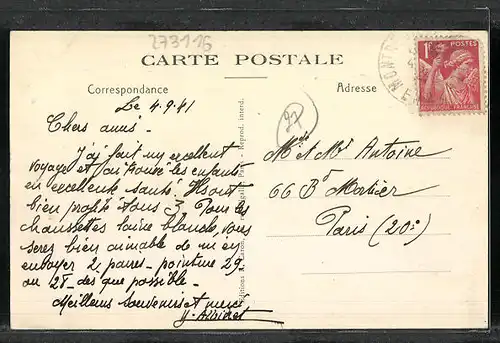 273116
CARTE POSTALE
Correspondance
Adresse
1F POSTES
Le 4.9.41
Chers amis.
J'ai fait un excellent
voyage et j'ai trouvé les enfants
en excellente santé Ils ont
bien profité tous 3. Pour les
chaussettes laine blande, vous
serez bien aimable de m'en
envoyer 2 paires - pointure 29
ou 28 - dès que possible -
Meilleurs souvenirs et merci
Mde et Mr Antoine
66 Bd Mortier
Paris (20e)
Reprod. interd.